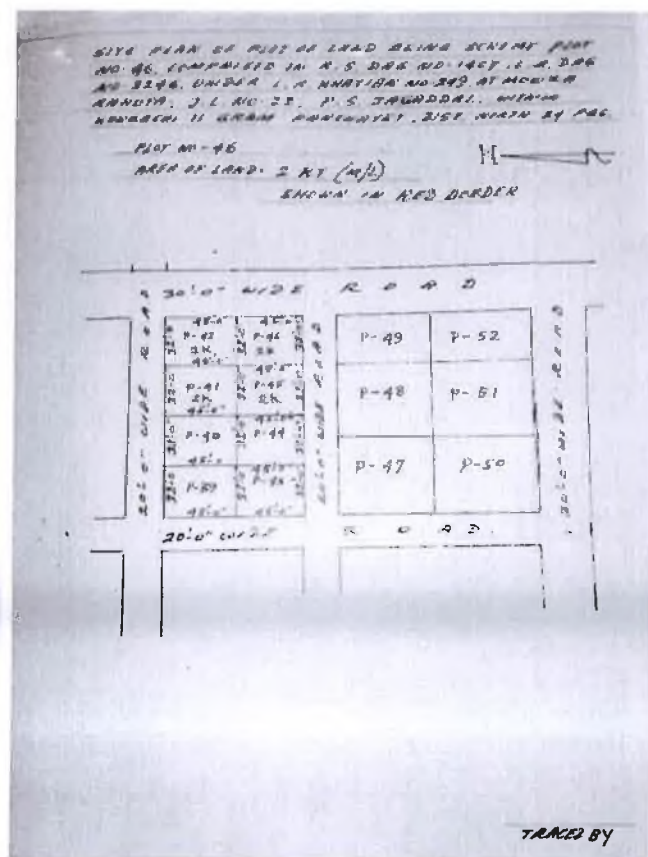 SITE PLAN OF PLOT OF LAND BEING SCHEME PLOT
NO. 46, COMPRISED IN R.S. DAG NO. 1467, L.R. DAG
NO. 2246, UNDER L.R. KHATIAN NO. 249, AT MOUZA
J.L. NO. 23, P.S. JAGADDAL, WITHIN
II GRAM PANCHAYET, DIST. NORTH 24 PGS.
PLOT NO - 46
AREA OF LAND. 2 KT (M/L)
SHOWN IN RED BORDER
N
30'-0" WIDE ROAD
20'-0" WIDE ROAD
45'-0" 45'-0"
32'-0" P-42 32'-0" P-46 32'-0"
2K 2K
45'-0" 45'-0"
32'-0" P-41 32'-0" P-45 32'-0"
2K 2K
45'-0" 45'-0"
32'-0" P-40 32'-0" P-44 32'-0"
45'-0" 45'-0"
32'-0" P-39 32'-0" 32'-0"
45'-0" 45'-0"
20'-0" WIDE ROAD
P-49 P-52
P-48 P-51
P-47 P-50
20'-0" WIDE ROAD
20'-0" WIDE ROAD
TRACED BY